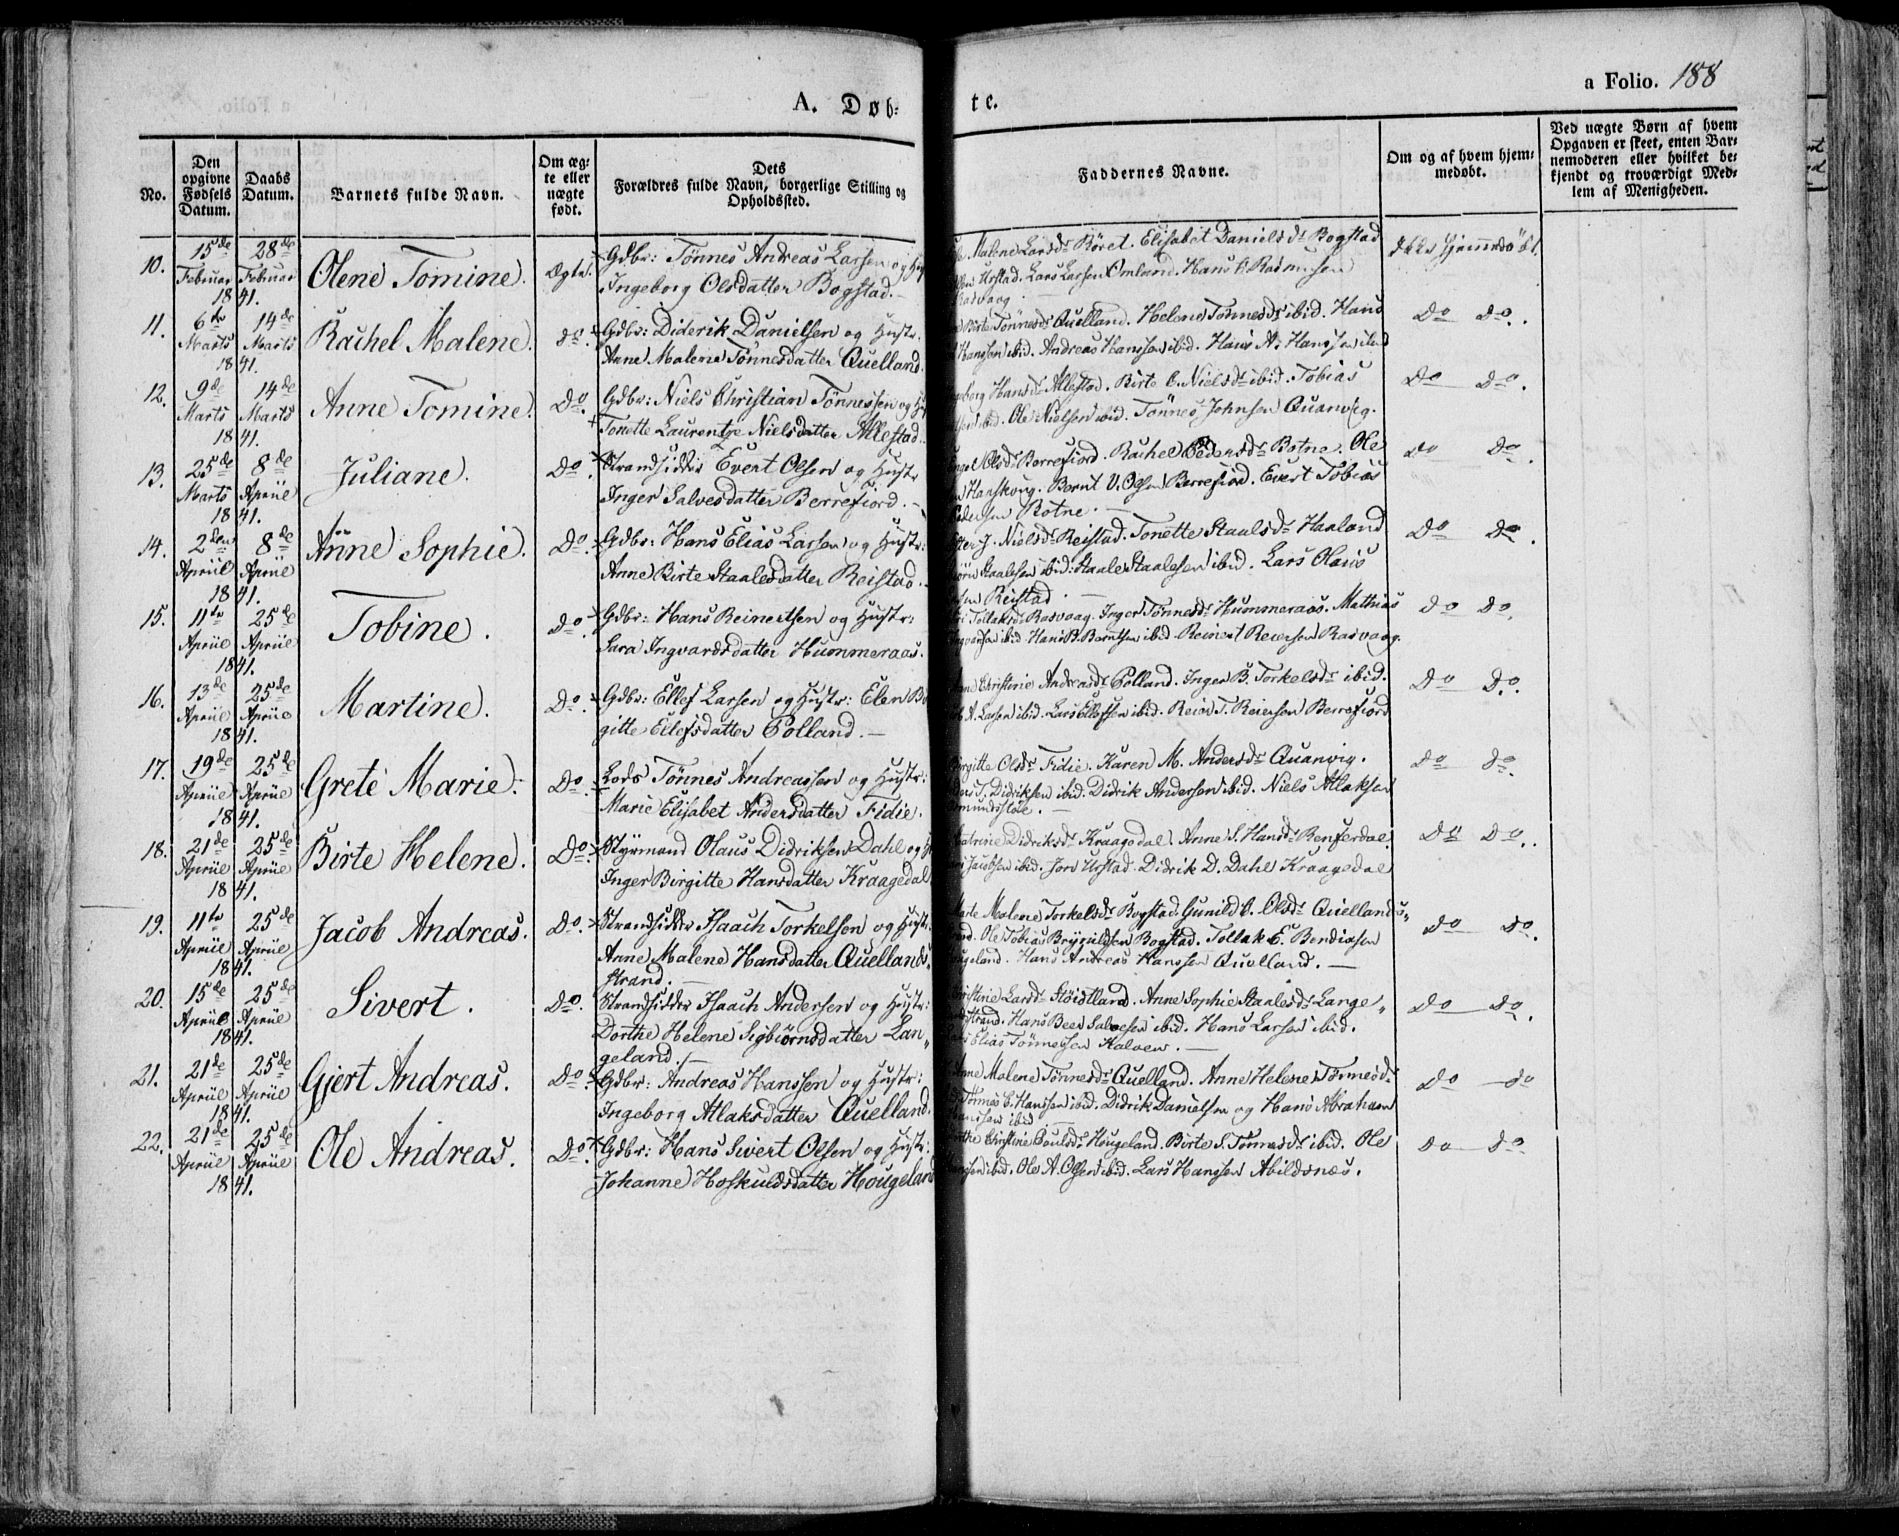 a Folio. 188
A. Døb-
te.
No.
Den opgivne Fødsels Datum.
Daabs Datum.
Barnets fulde Navn.
Om ægte eller uægte født.
Dets Forældres fulde Navn, borgerlige Stilling og Opholdssted.
Faddernes Navne.
Om og af hvem hjemmedøbt.
Ved uægte Børn af hvem Opgaven er skeet, enten Barnemoderen eller hvilket bekjendt og troværdigt Medlem af Menigheden.
10. 15de Februar 1841. 28de Februar Olene Tomine. Ægte. Gdbr: Tönnes Andreas Larsen og
Ingeborg Olsdatter Bogstad.
Malene Larsdr Röret. Elisabet Danielsdr Bogstad
Urstad. Lars Larsen Omland. Hans C. Rasmusen
Rasvaag.
Ikke hjemmedöbt.
11. 6te Marts 1841. 14de Marts Rachel Malene. Do. Gdbr: Diderik Danielsen og Hustr:
Anne Malene Tönnesdatter Quelland.
Birte Tönnesdr Quelland. Helene Tönnesdr ibid. Hans
Hanssen ibid. Andreas Hanssen ibid. Hans A. Hanssen ibid
Do Do.
12. 9de Marts 1841. 14de Marts Anne Tomine. Do. Gdbr: Niels Christian Tönnessen og
Tonette Laurentze Nielsdatter Allestad.
Hansdr Allestad. Birte C. Nielsdr ibid. Tobias
ibid. Ole Nielsen ibid. Tönnes Johnsen Quanvig.
Do Do.
13. 25de Marts 1841. 8de Apriil Juliane. Do. Strandsidder Evert Olsen og Hustr
Inger Salvesdatter Berrefiord.
Olsdr Berrefiord. Rachel Pedersdr Botne. Ole
Hanskoug. Bernt V. Olsen Berrefiord. Evert Tobias
Pedersen Botne.
Do Do.
14. 2den Apriil 1841. 8de Apriil Anne Sophie. Do. Gdbr: Hans Elias Larsen og Hustr:
Anne Birte Staalesdatter Reistad.
J. Nielsdr Reistad. Tonette Staalsdr Haaland
Staalesen ibid. Staale Staalesen ibid. Lars Olaus
Reistad.
Do Do.
15. 11te Apriil 1841. 25de Apriil Tobine. Do. Gdbr: Hans Reinertsen og Hustr:
Sara Ingvardsdatter Hummeraas.
Tollaksdr Rasvaag. Inger Tönnesdr Hummeraas. Mathias
Ingvardsen ibid. Hans B. Berntsen ibid. Reinert Reiersen Rasvaag.
Do Do.
16. 13de Apriil 1841. 25de Apriil Martine. Do. Gdbr: Ellef Larsen og Hustr: Elen Bir
gitte Eilefsdatter Polland.
Christine Andreasdr Polland. Inger B. Torkelsdr ibid.
A. Larsen ibid. Lars Ellefsen ibid. Reier T. Reiersen Berrefiord
Do Do.
17. 19de Apriil 1841. 25de Apriil Grete Marie. Do. Lods Tönnes Andreassen og Hustr:
Marie Elisabet Andersdatter Fidie.
Birgitte Olsdr Fidie. Karen M. Andersdr Quanvig.
T. Didriksen ibid. Didrik Andersen ibid. Niels Atlaksen
Omundsstöle.
Do Do.
18. 21de Apriil 1841. 25de Apriil Birte Helene. Do. Styrmand Olaus Didriksen Dahl og
Inger Birgitte Hansdatter Kraagedal
Catrine Didriksdr Kraagedal. Anne S. Hansdr Benferdal.
Jacobsen ibid. Jon Urstad. Didrik D. Dahl Kraagedal
Do Do.
19. 11te Apriil 1841. 25de Apriil Jacob Andreas. Do. Strandsidder Isaach Torkelsen og Hustr.
Anne Malene Hansdatter Quellands-
strand.
Marte Malene Torkelsdr Bogstad. Gunild C. Olsdr Quellands-
Ole Tobias Brÿnildsen Bogstad. Tollak E. Bendixsen
Hougeland. Hans Andreas Hanssen Quelland.
Do Do.
20. 15de Apriil 1841. 25de Apriil Sivert. Do. Strandsidder Isaach Andersen og Hustr:
Dorthe Helene Sigbiörnsdatter Lan-
geland.
Christine Larsdr Stöistland. Anne Sophie Staalesdr Lange-
strand. Hans Beer Salvesen ibid. Hans Larsen ibid.
Elias Tönnessen Kalven.
Do Do.
21. 21de Apriil 1841. 25de Apriil Gjert Andreas. Do. Gdbr: Andreas Hanssen og Hustr:
Ingeborg Atlaksdatter Quelland.
Anne Malene Tönnesdr Quelland. Anne Helene Tönnesdr
Tönnes C. Hanssen ibid. Didrik Danielsen og Hans Abraham
Hanssen ibid
Do Do
22. 21de Apriil 1841. 25de Apriil Ole Andreas. Do. Gdbr: Hans Sivert Olsen og Hustr:
Johanne Hoskuldsdatter Hougeland
Christine Paulsdr Hougeland. Birte S. Tönnesdr ibid. Ole
ibid. Ole A. Olsen ibid. Lars Hanssen Abildsnæs.
Do Do